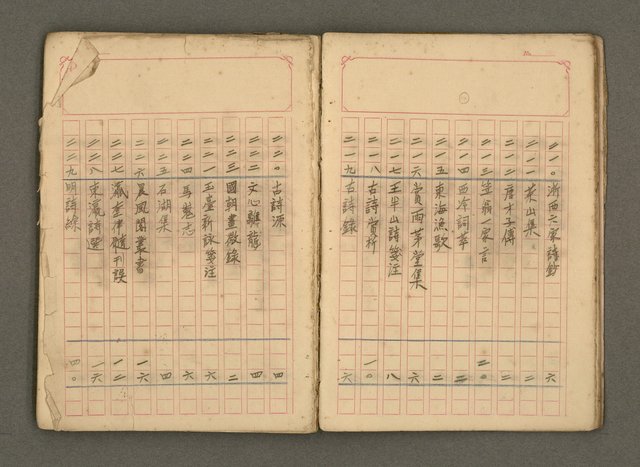 二一〇浙西六家詩鈔 六
二一一茶山集 二
二一二唐才子傳 二
二一三笠翁一家言 二〇
二一四西泠詞萃 二
二一五東海漁歌 二
二一六賞雨茅堂集 六
二一七王半山詩箋注 八
二一八古詩賞析 一〇
二一九古詩錄 六
二二〇古詩源 四
二二一文心雕龍 四
二二三國朝畫徵錄 二
二二一玉臺新詠箋注 六
二二四馬氏志 六
二二五石湖集 四
二二六晨風閣叢書 一六
二二七瀛奎律髓刊誤 一二
二二八東瀛詩選 一六
二二九明詩綜 四〇